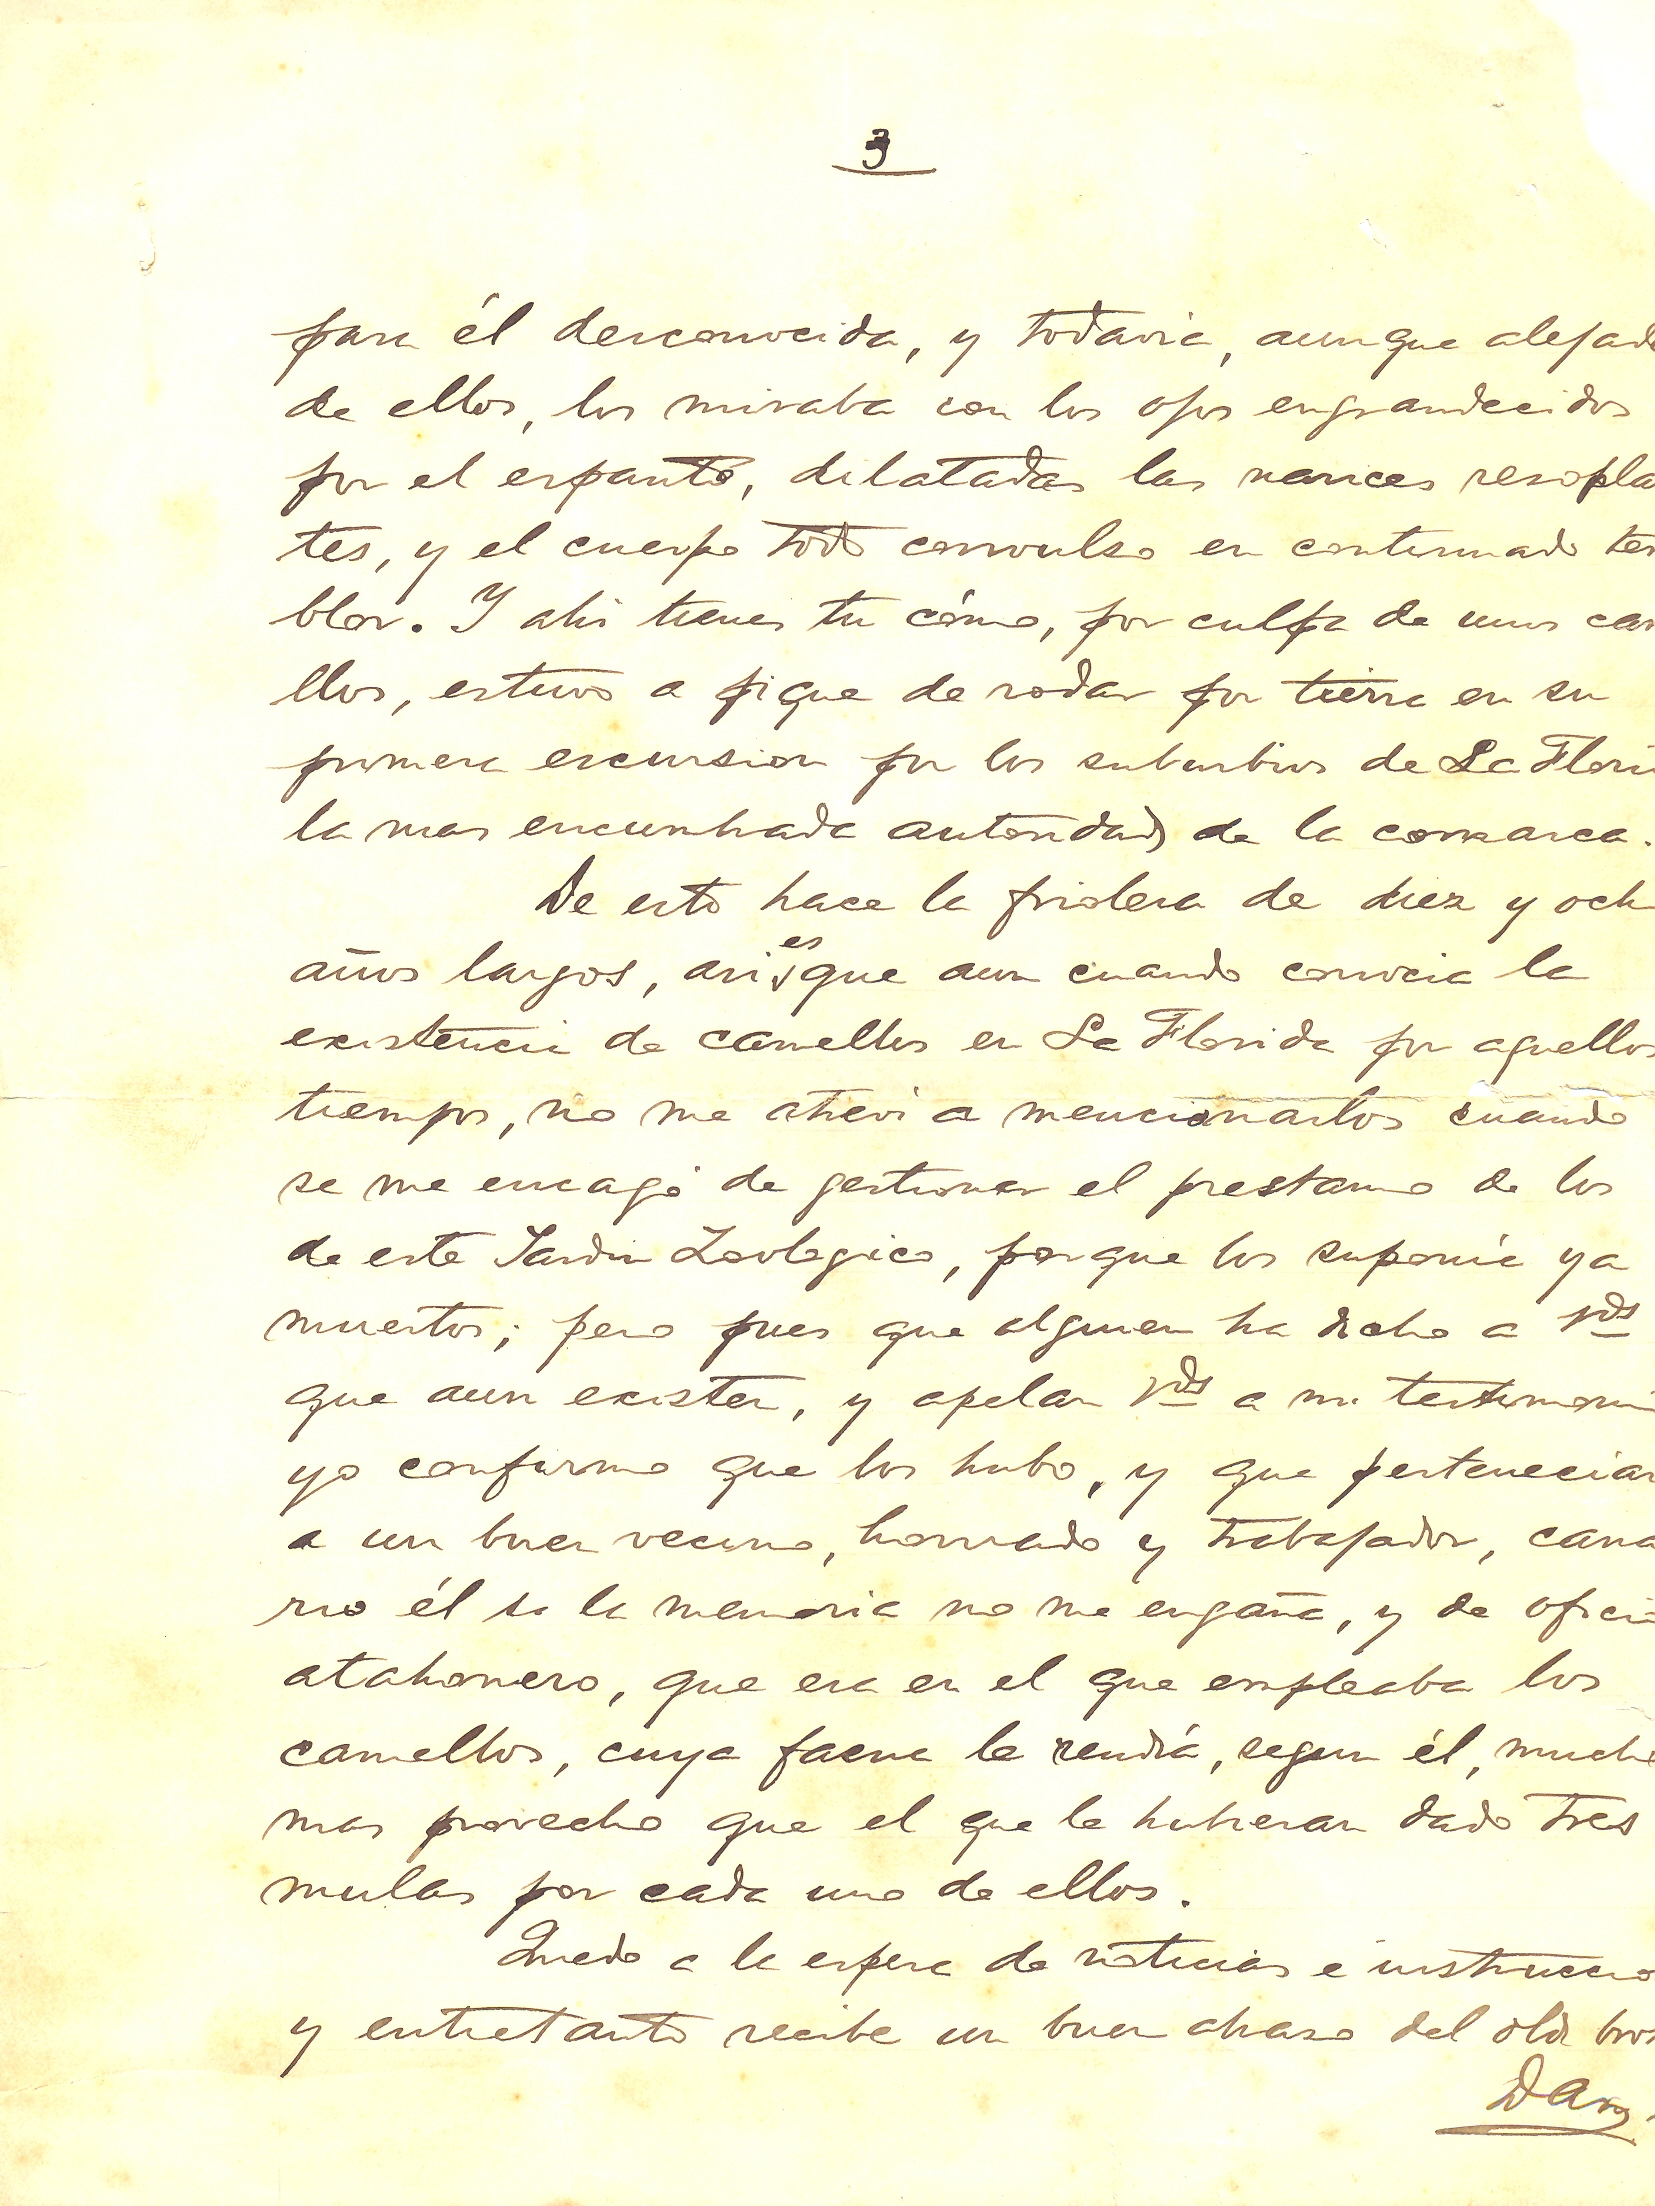 3
para él desconocida, y todavia, aunque alejado
de ellos, los miraba con los ojos engrandecidos
por el espanto, dilatadas las narices resopla
tes, y el cuerpo todo convulso en continuado tem
blor. Y ahi tienes tu cómo, por culpa de unos cam
llos, estuvo a pique de rodar por tierra en su
primera excursion por los suburbios de La Flori
la mas encumbrada autoridad de la comarca.
De esto hace la friolera de diez y och
años largos, asi es que aun cuando conocia la
existencia de camellos en La Florida por aquellos
tiempos, no me atrevi a mencionarlos cuando
se me encagó de gestionar el prestamo de los
de este Jardin Zoologico, porque los suponia ya
muertos; pero pues que alguien ha dicho a Vds
que aun existen, y apelan Vds a mi testimoni
yo confirmo que los hubo, y que pertenecian
a un buen vecino, honrado y trabajador, cana
rio él si la memoria no me engaña, y de oficio
atahonero, que era en el que empleaba los
camellos, cuya faena le rendía, segun él, mucho
mas provecho que el que le hubieran dado tres
mulas por cada uno de ellos.
Quedo a la espera de noticias e instruccio
y entretanto recibe un buen abrazo del old bro